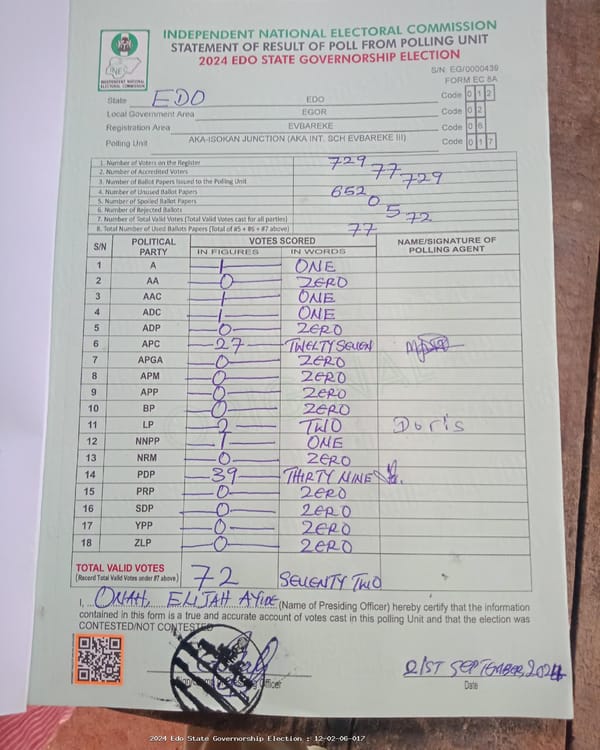 INDEPENDENT NATIONAL ELECTORAL COMMISSION
STATEMENT OF RESULT OF POLL FROM POLLING UNIT
2024 EDO STATE GOVERNORSHIP ELECTION
INDEPENDENT NATIONAL ELECTORAL COMMISSION
S/N EG/0000439
FORM EC 8A
State EDO EDO Code 0 1 2
Local Government Area EGOR Code 0 2
Registration Area EVBAREKE Code 0 6
Polling Unit AKA-ISOKAN JUNCTION (AKA INT. SCH EVBAREKE III) Code 0 1 7
1. Number of Voters on the Register 729
2. Number of Accredited Voters 77
3. Number of Ballot Papers Issued to the Polling Unit 729
4. Number of Unused Ballot Papers 652
5. Number of Spoiled Ballot Papers 0
6. Number of Rejected Ballots 5
7. Number of Total Valid Votes (Total Valid Votes cast for all parties) 72
8. Total Number of Used Ballots Papers (Total of #5 + #6 + #7 above) 77
S/N POLITICAL PARTY VOTES SCORED NAME/SIGNATURE OF POLLING AGENT
IN FIGURES IN WORDS
1 A 1 ONE
2 AA 0 ZERO
3 AAC 1 ONE
4 ADC 1 ONE
5 ADP 0 ZERO
6 APC 27 TWELTY SEVEN
7 APGA 0 ZERO
8 APM 0 ZERO
9 APP 0 ZERO
10 BP 0 ZERO
11 LP 2 TWO Doris
12 NNPP 1 ONE
13 NRM 0 ZERO
14 PDP 39 THIRTY NINE
15 PRP 0 ZERO
16 SDP 0 ZERO
17 YPP 0 ZERO
18 ZLP 0 ZERO
TOTAL VALID VOTES 72 SEVENTY TWO
(Record Total Valid Votes under #7 above)
I, ONAH, ELIJAH AYIDE (Name of Presiding Officer) hereby certify that the information
contained in this form is a true and accurate account of votes cast in this polling Unit and that the election was
CONTESTED/NOT CONTESTED
Officer
21ST SEPTEMBER, 2024
Date
2024 Edo State Governorship Election : 12-02-06-017